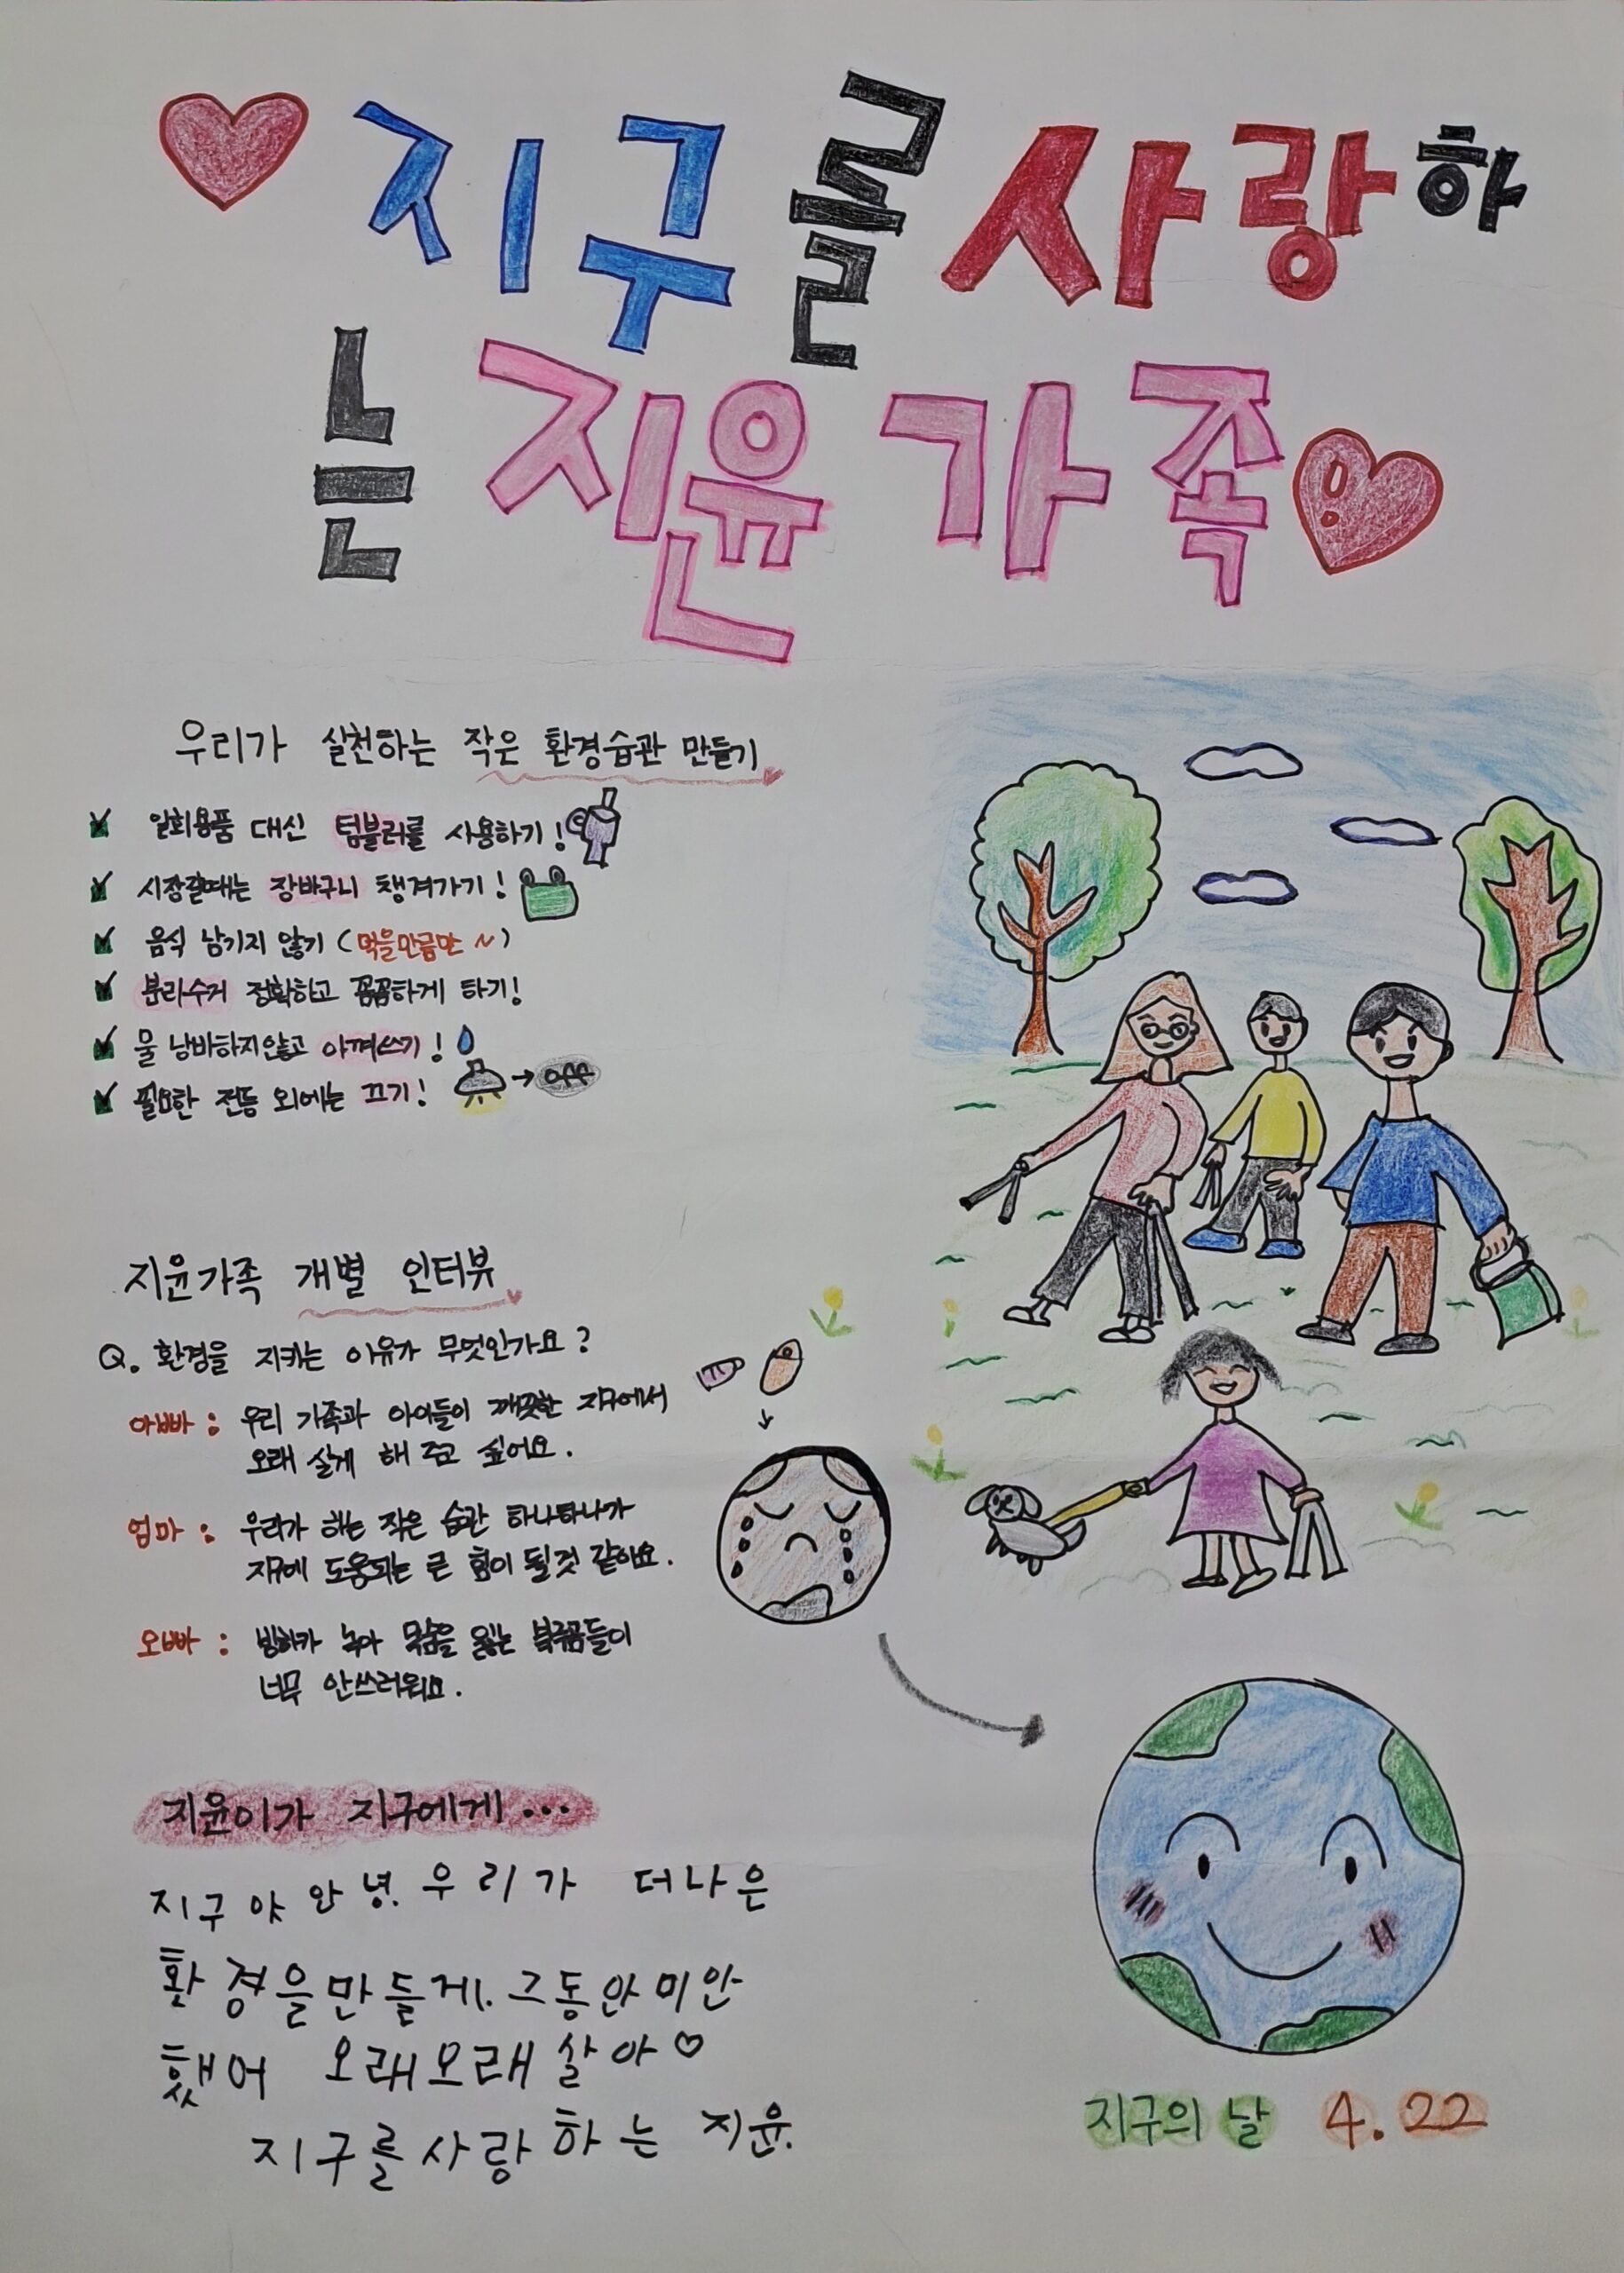 지구를 사랑하
는 지윤 가족
우리가 실천하는 작은 환경습관 만들기
일회용품 대신 텀블러를 사용하기!
시장갈때는 장바구니 챙겨가기!
음식 남기지 않기 (먹을만큼만~)
분리수거 정확하고 꼼꼼하게 하기!
물 낭비하지않고 아껴쓰기!
필요한 전등 외에는 끄기! → off
지윤가족 개별 인터뷰
Q. 환경을 지키는 이유가 무엇인가요?
아빠 : 우리 가족과 아이들이 깨끗한 지구에서
오래 살게 해 주고 싶어요.
엄마 : 우리가 하는 작은 습관 하나하나가
지구에 도움되는 큰 힘이 될것 같아요.
오빠 : 빙하가 녹아 목숨을 잃는 북극곰들이
너무 안쓰러워요.
지윤이가 지구에게...
지구야 안녕. 우리가 더나은
환경을만들게. 그동안미안
했어 오래오래살아♡
지구를사랑하는 지윤.
지구의 날 4.22